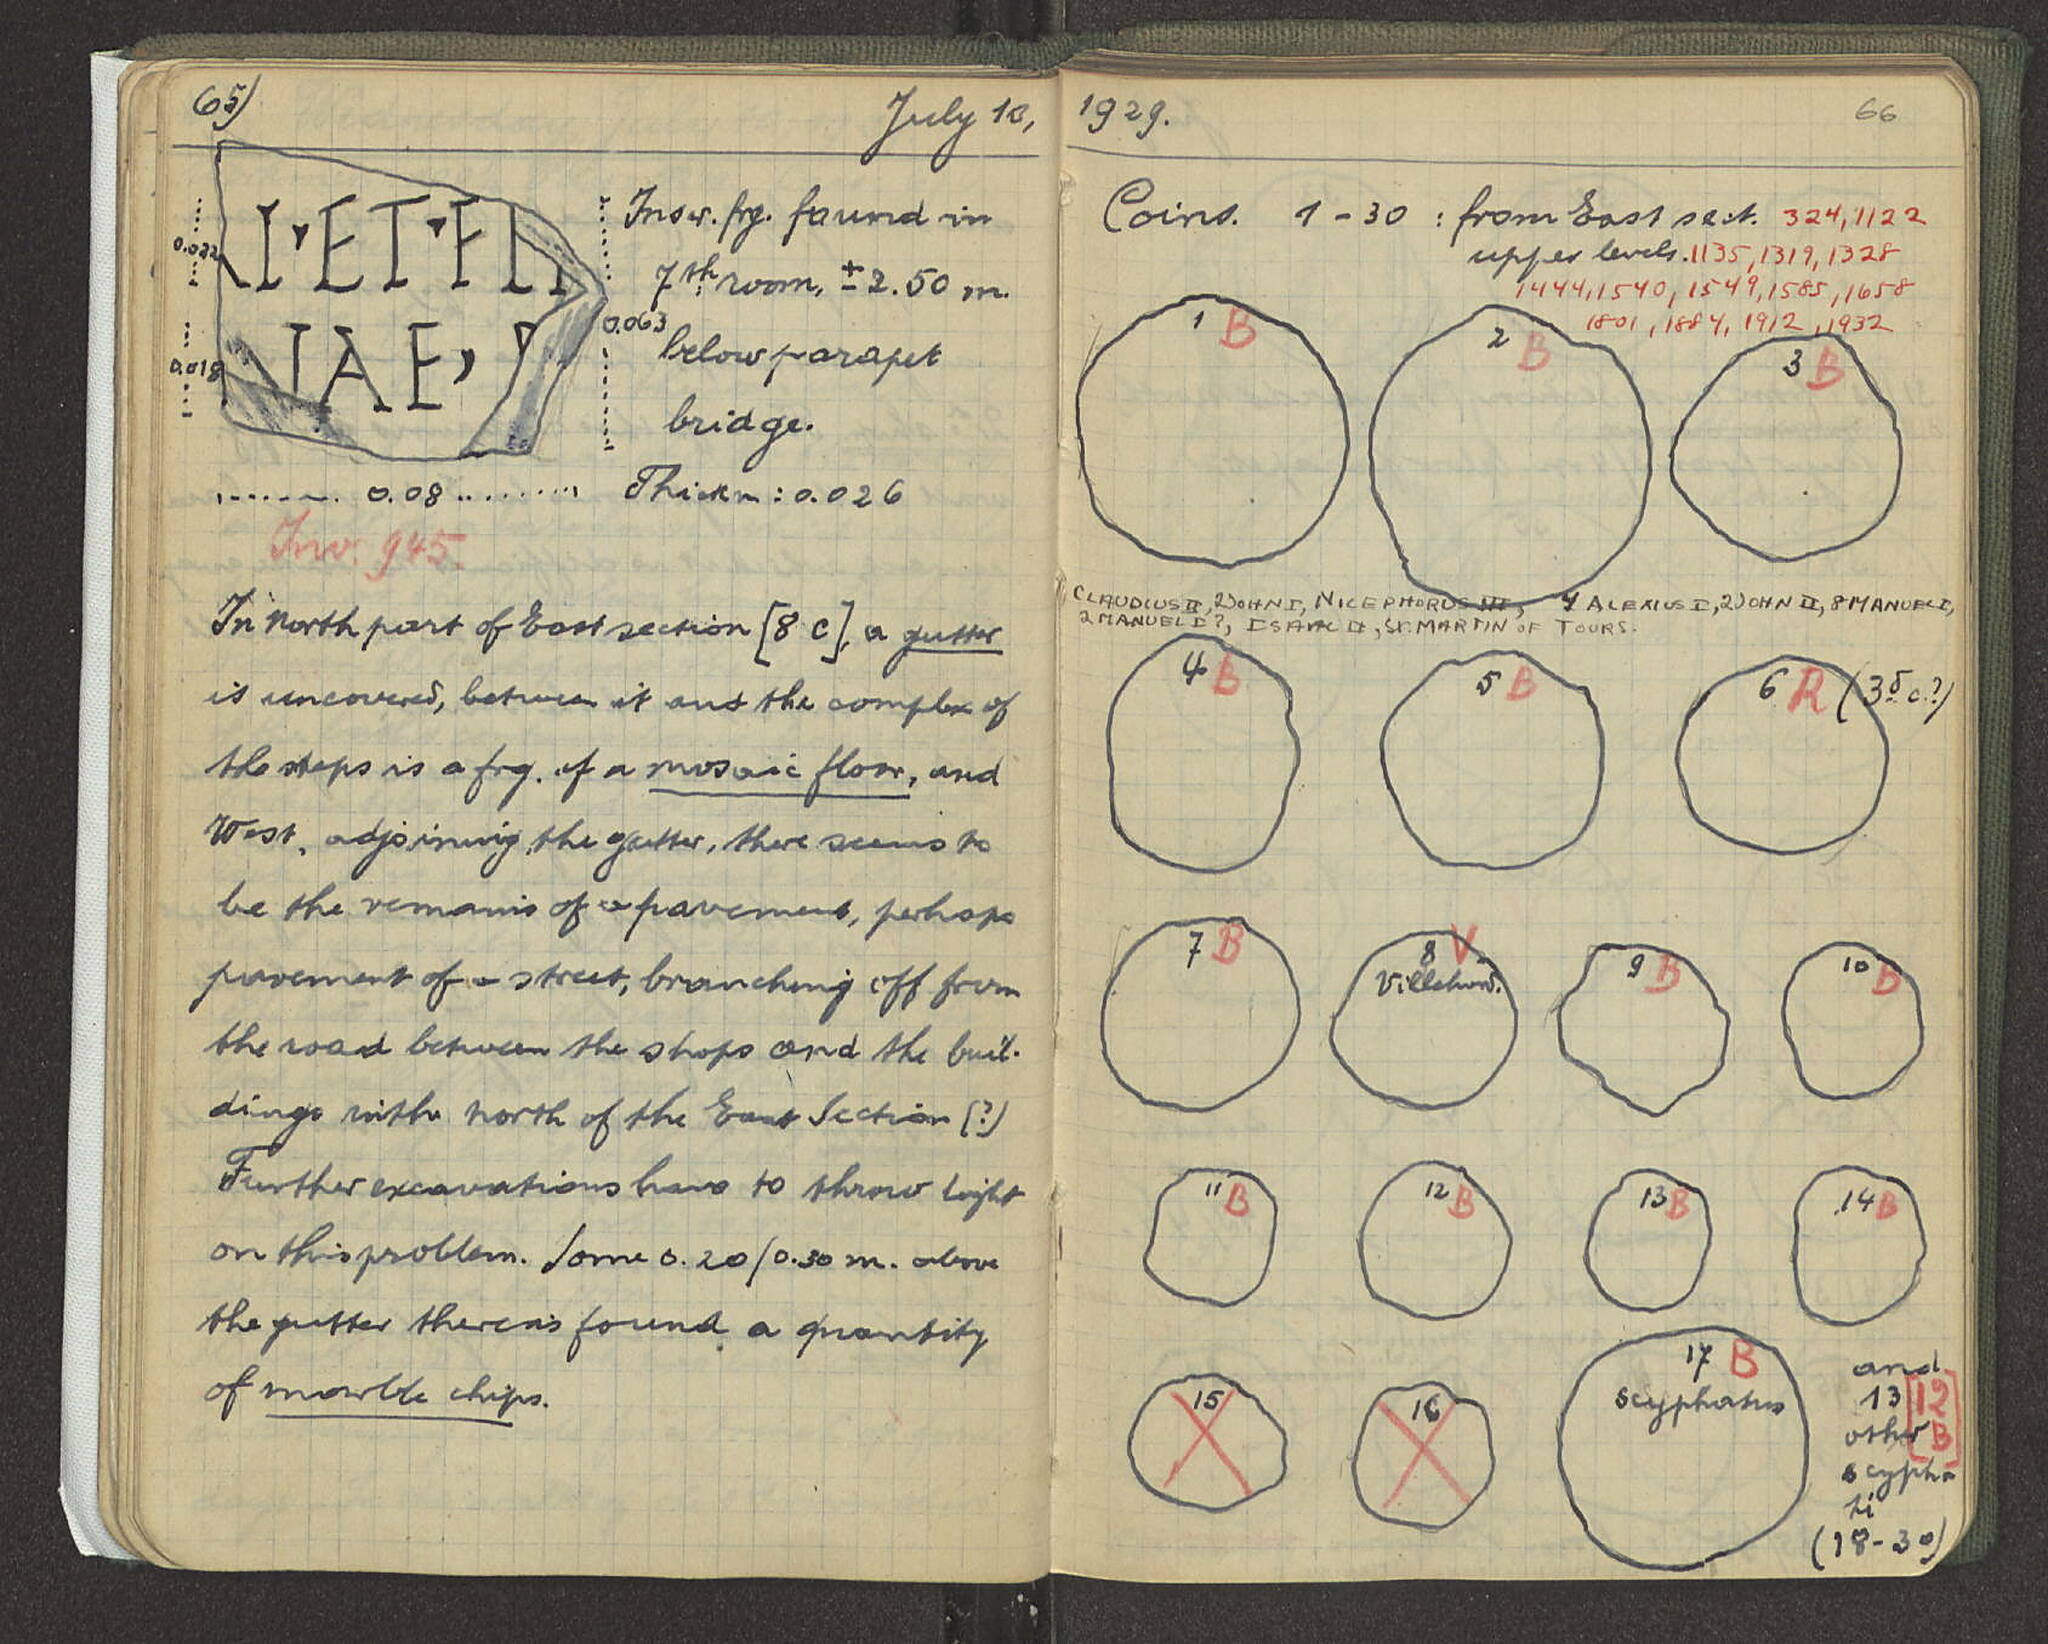 65)
July 10,
0.022
I'ET'FI
0.018
NAE'
Inscr. frg. found in
7th room, ±2.50 m.
0.063
below parapet
bridge.
0.08
Thickn: 0.026
Inv. 945.
In North part of East section [8 c], a gutter
is uncovered, between it and the complex of
the steps is a frg. of a mosaic floor, and
West, adjoining the gutter, there seems to
be the remains of a pavement, perhaps
pavement of a street, branching off from
the road between the shops and the buil-
dings in the north of the East Section (?)
Further excavations have to throw light
on this problem. Some 0.20/0.30 m. above
the gutter there is found a quantity
of marble chips.
1929.
66
Coins. 1 - 30 : from East sect. 324, 1122
upper levels. 1135, 1319, 1328
1444, 1540, 1549, 1585, 1658
1801, 1884, 1912, 1932
1 B
2 B
3 B
CLAUDIUS II, 2 JOHN I, NICEPHORUS III, 4 ALEXIUS I, 2 JOHN II, 8 MANUEL I,
2 MANUEL I?, ISAAC II, ST. MARTIN OF TOURS.
4 B
5 B
6 R (3d c.?)
7 B
8 V.
Villehard.
9 B
10 B
11 B
12 B
13 B
14 B
15
16
17 B
scyphatus
and
13 [12
other B]
scypha
ti
(18-30)